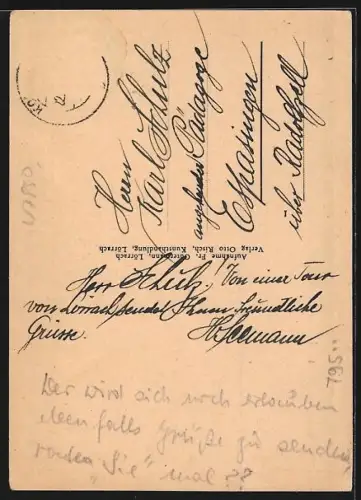 Herrn
Karl Schulz
angehender Pädagoge
Espasingen
über Radolfzell
Aufnahme Fr. Ostermann, Lörrach
Verlag Otto Risch, Kunsthandlung, Lörrach
Herr Schulz! Von einer Tour
von Lörrach sendet Ihnen freundliche
Grüsse.
Der wird sich noch erlauben
ebenfalls Grüße zu senden,
raten "Sie" mal??